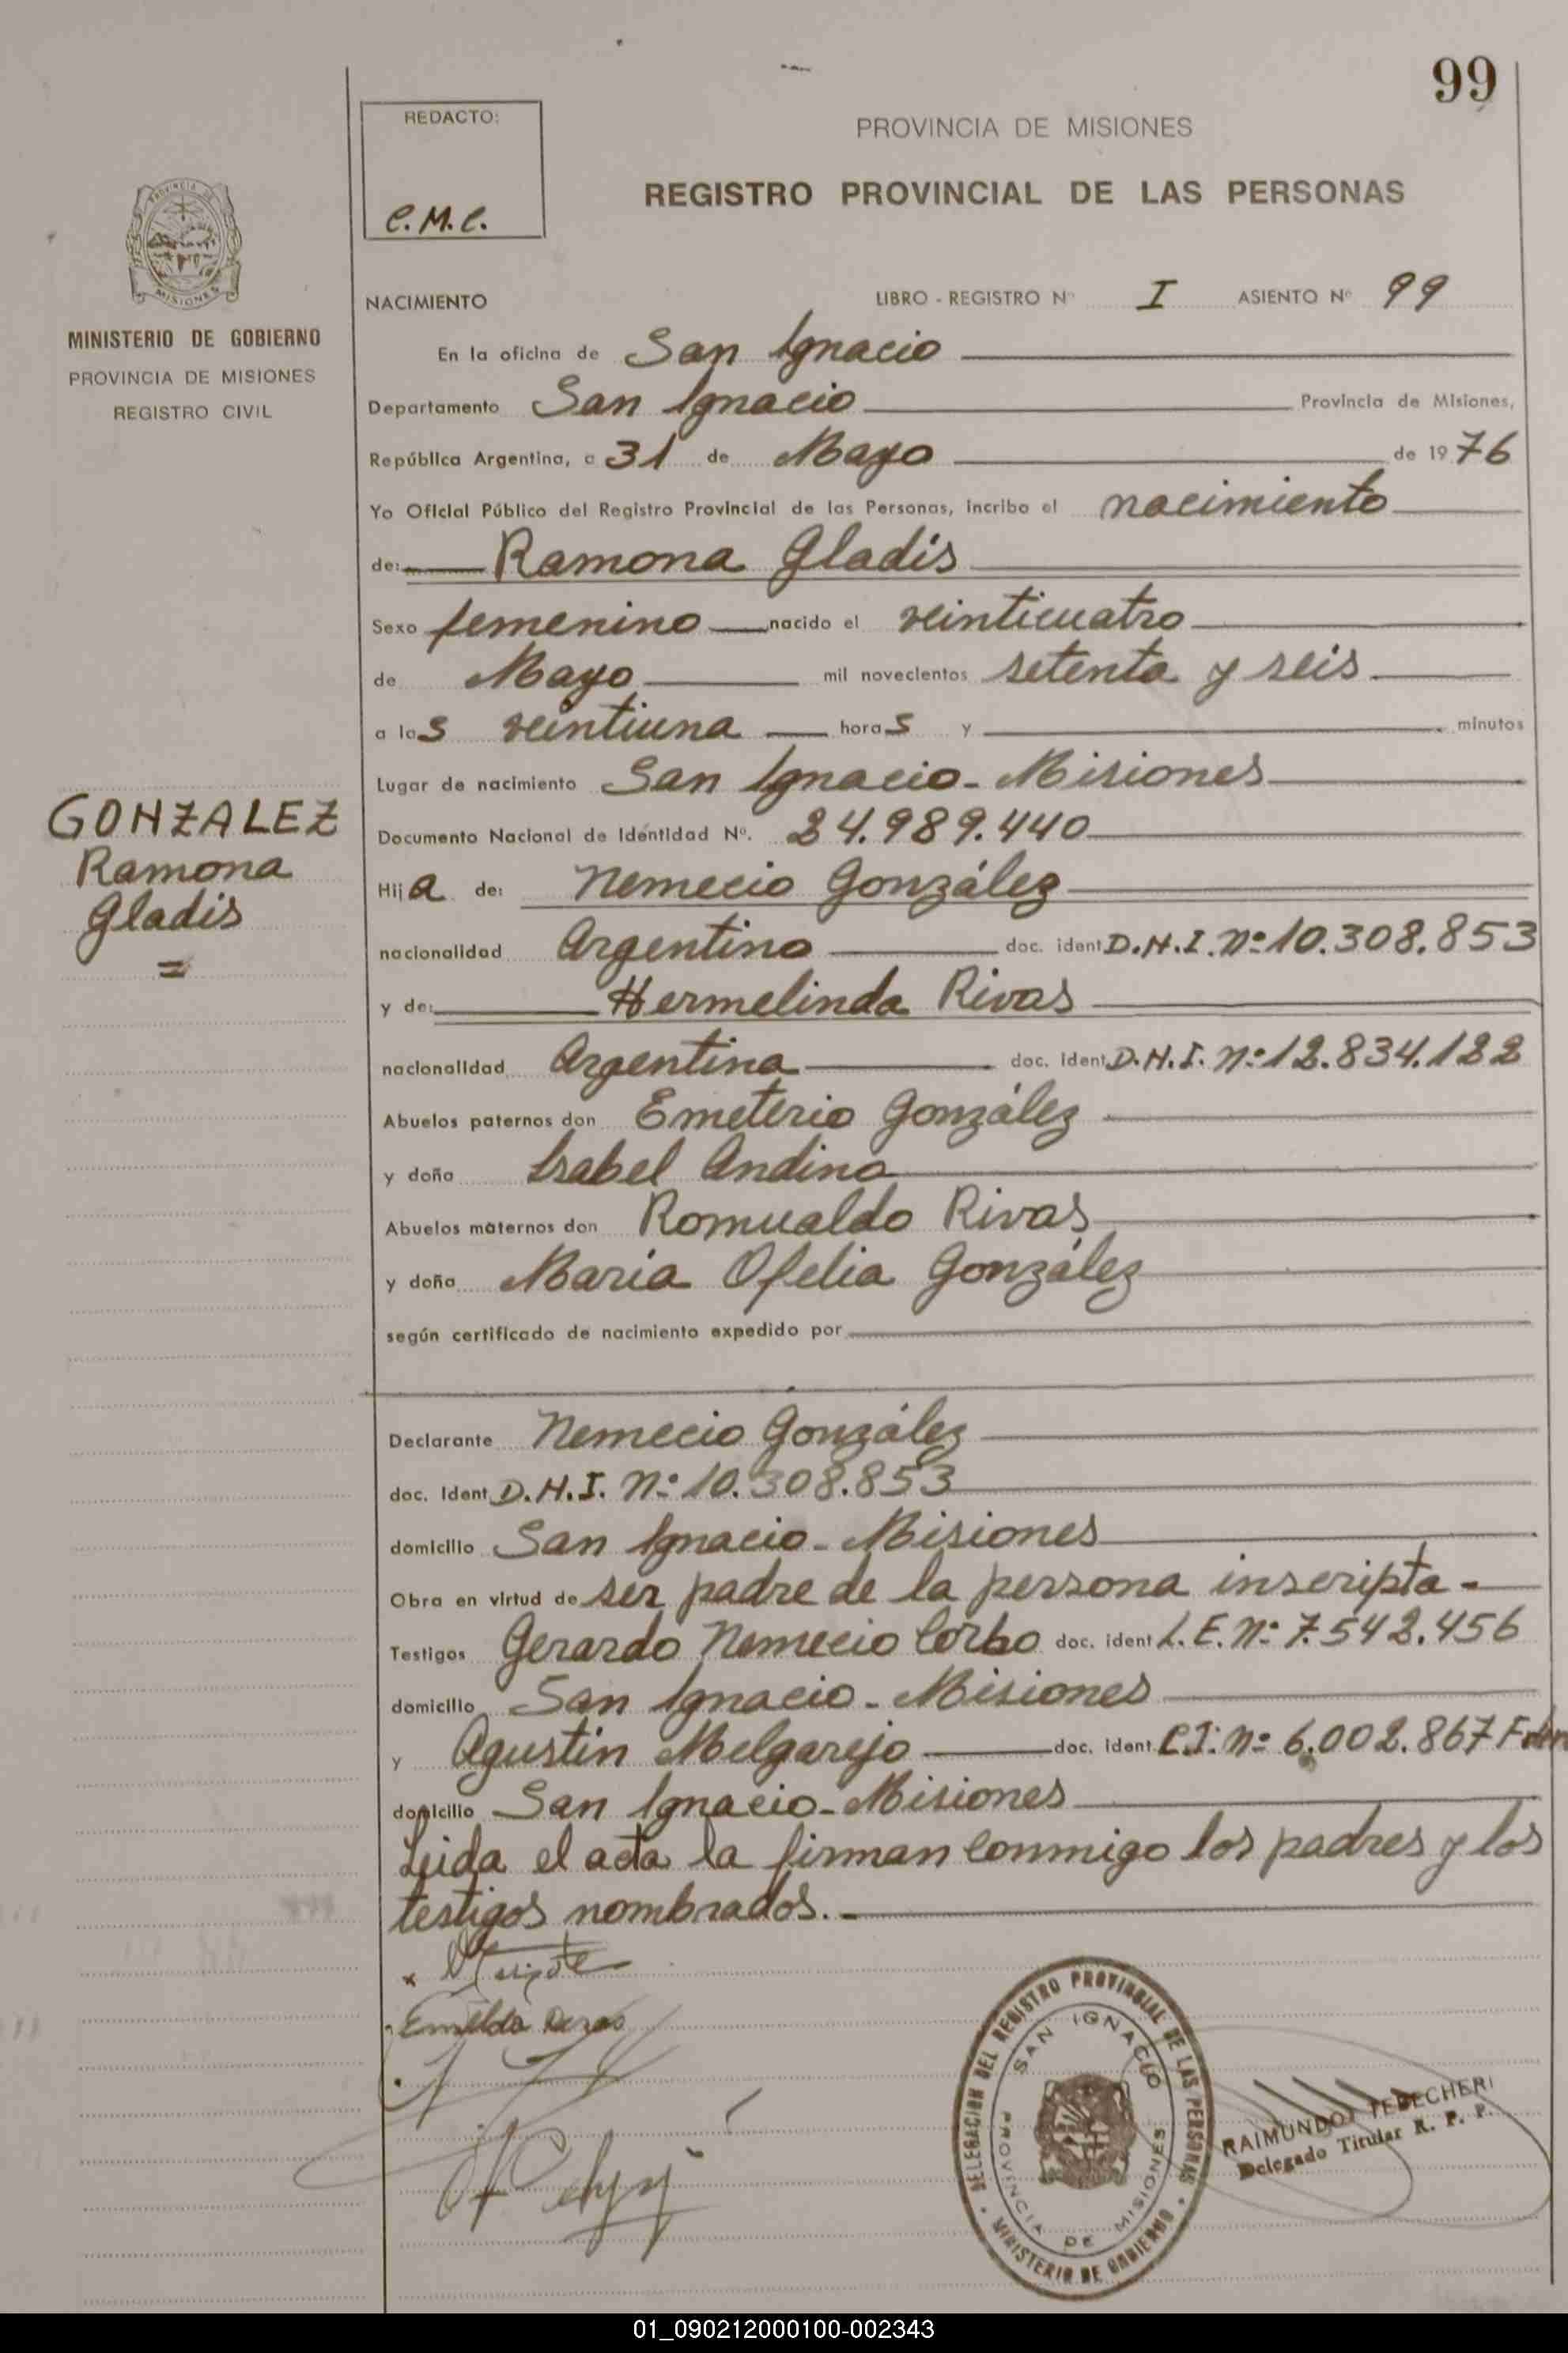 99
REDACTO:
C.M.C.
PROVINCIA DE MISIONES
REGISTRO PROVINCIAL DE LAS PERSONAS
MISIONES
MINISTERIO DE GOBIERNO
PROVINCIA DE MISIONES
REGISTRO CIVIL
NACIMIENTO LIBRO - REGISTRO Nº I ASIENTO Nº 99
En la oficina de San Ignacio
Departamento San Ignacio Provincia de Misiones,
República Argentina, a 31 de Mayo de 1976
Yo Oficial Público del Registro Provincial de las Personas, incribo el nacimiento
de: Ramona Gladis
Sexo femenino nacido el veinticuatro
de Mayo mil novecientos setenta y seis
a las veintiuna horas y minutos
Lugar de nacimiento San Ignacio - Misiones
GONZALEZ
Ramona
Gladis
=
Documento Nacional de Identidad Nº. 24.989.440
Hija de: Nemecio González
nacionalidad Argentino doc. ident D.N.I. Nº 10.308.853
y de: Hermelinda Rivas
nacionalidad Argentina doc. ident D.N.I. Nº 12.834.122
Abuelos paternos don Emeterio González
y doña Isabel Andino
Abuelos maternos don Romualdo Rivas
y doña María Ofelia González
según certificado de nacimiento expedido por
Declarante Nemecio González
doc. Ident D.N.I. Nº 10.308.853
domicilio San Ignacio - Misiones
Obra en virtud de ser padre de la persona inscripta -
Testigos Gerardo Nemecio Corbo doc. ident L.E. Nº 7.542.456
domicilio San Ignacio - Misiones
y Agustín Melgarejo doc. ident C.I. Nº 6.002.867
domicilio San Ignacio - Misiones
Leida el acta la firman conmigo los padres y los
testigos nombrados. -
DELEGACION DEL REGISTRO PROVINCIAL DE LAS PERSONAS
SAN IGNACIO
PROVINCIA DE MISIONES
MINISTERIO DE GOBIERNO
RAIMUNDO TEBECHERI
Delegado Titular R. P. P.
01_090212000100-002343